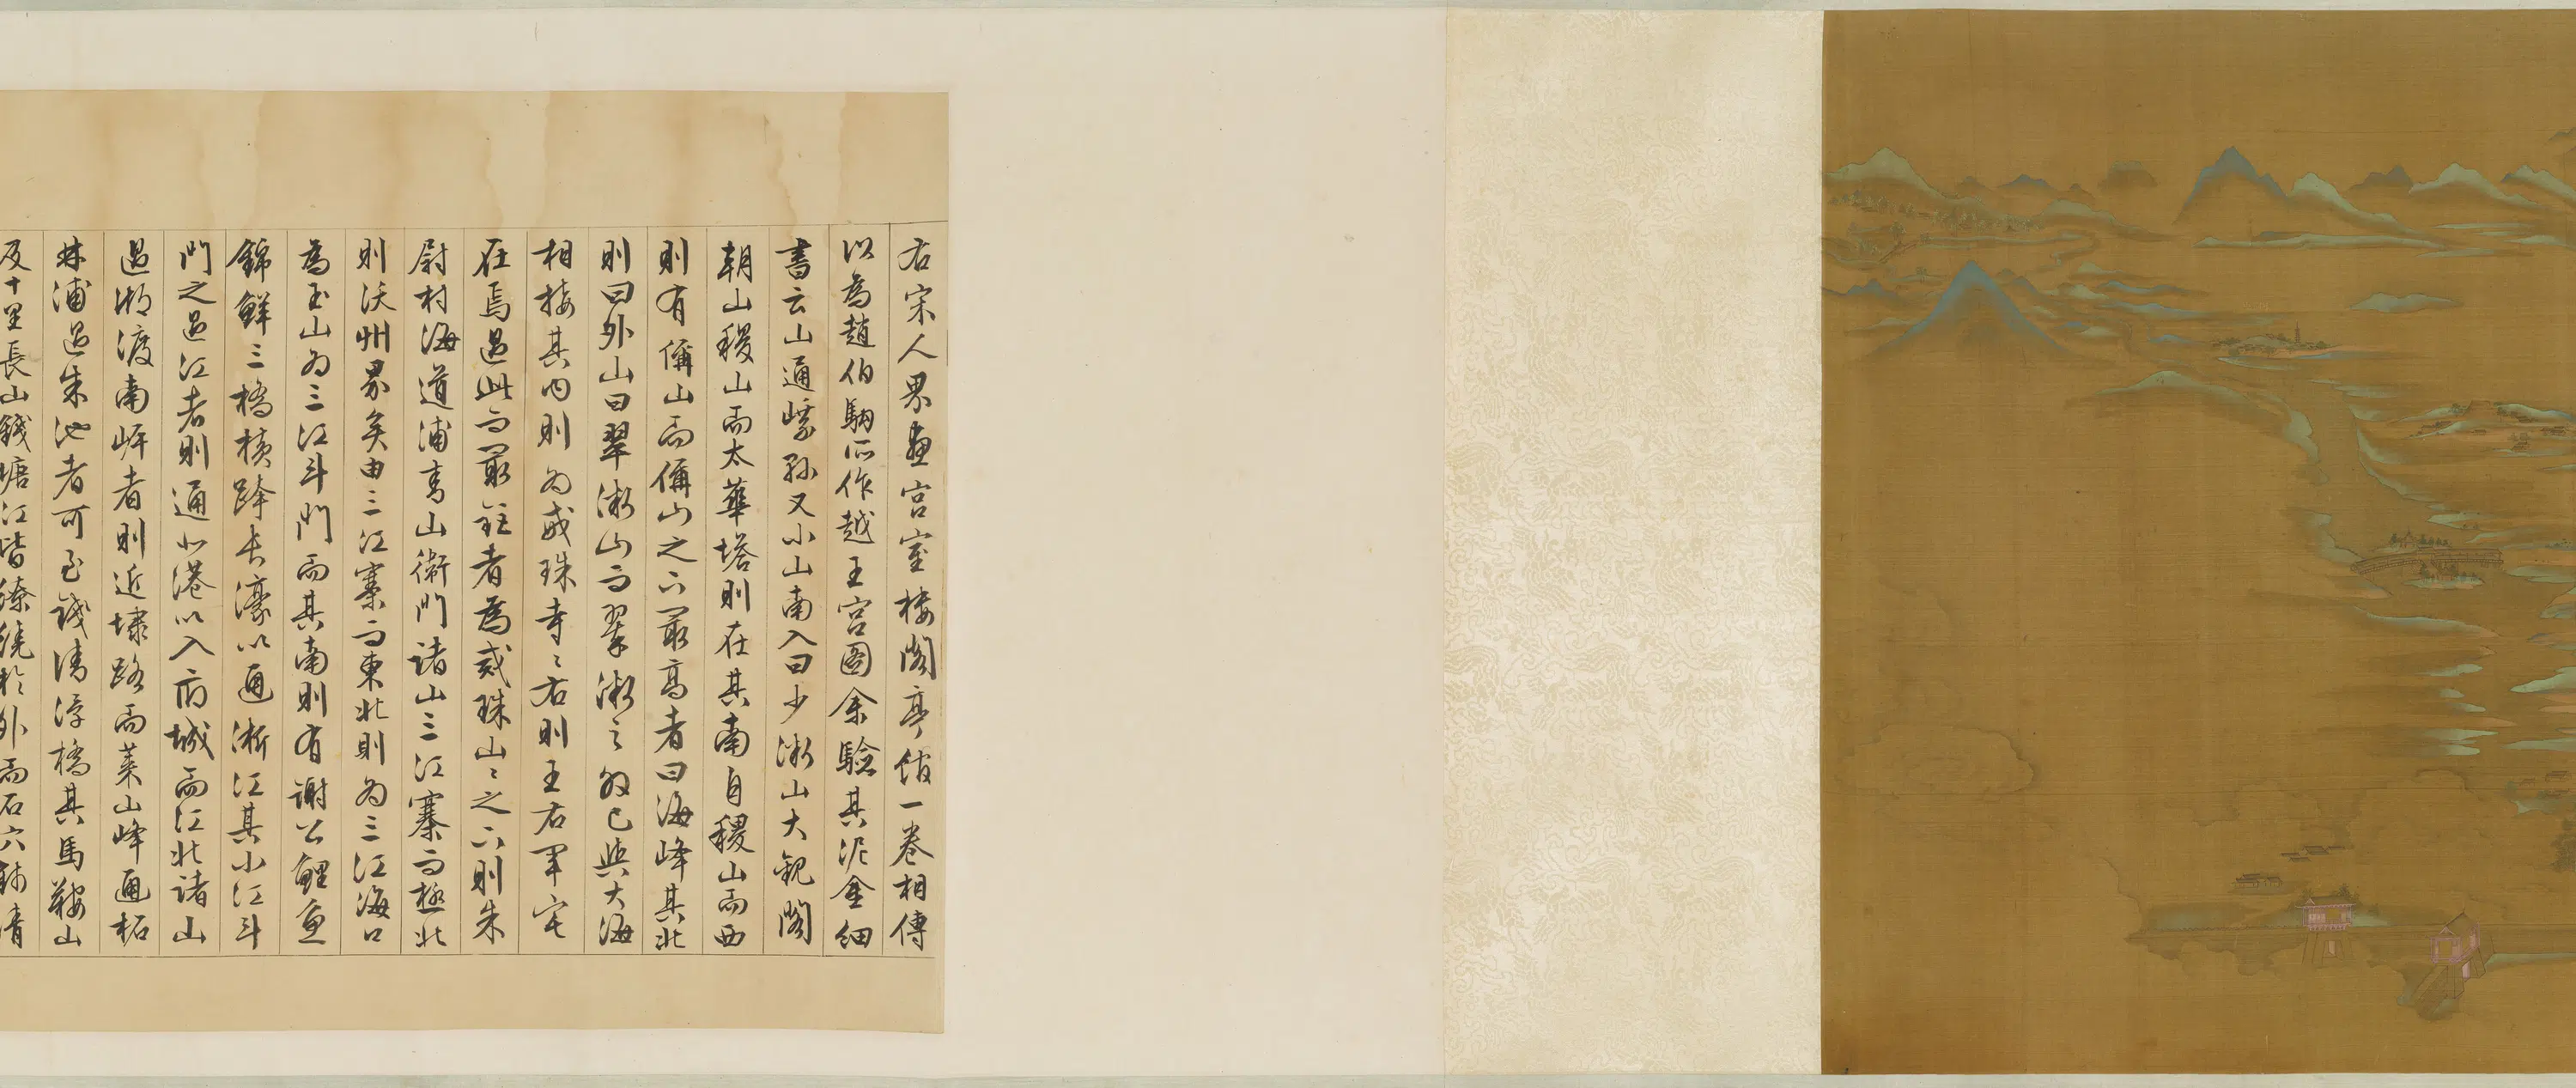 右宋人界畫宮室樓閣亭館一卷相傳
以為趙伯駒所作越王宮圖余驗其泥金細
書云山通嵊又小山南入曰少山大觀閣
朝山稷山而太華塔則在其南自稷山而西
則有偁山而偁山之下最高者曰海峰其北
則曰外山曰翠山而翠之已與大海
相接其内則為戒珠寺〻右則王右軍宅
在焉過此而最者為戒珠山〻之下則朱
尉村海道浦嵩山衛門諸山三江寨而極北
則沃州界矣由三江寨而東北則為三江海口
為玉山為三江斗門而其南則有謝公鯉魚
錦鱗三橋橫跨長濠以通浙江其小江斗
門之過江者則通北港以入府城而江北諸山
過湖渡南岸者則近埭路而菜山峰通柘
林浦過朱池者可至錢清浮橋其馬鞍山
及十里長山錢塘江皆繚繞於外而石六清